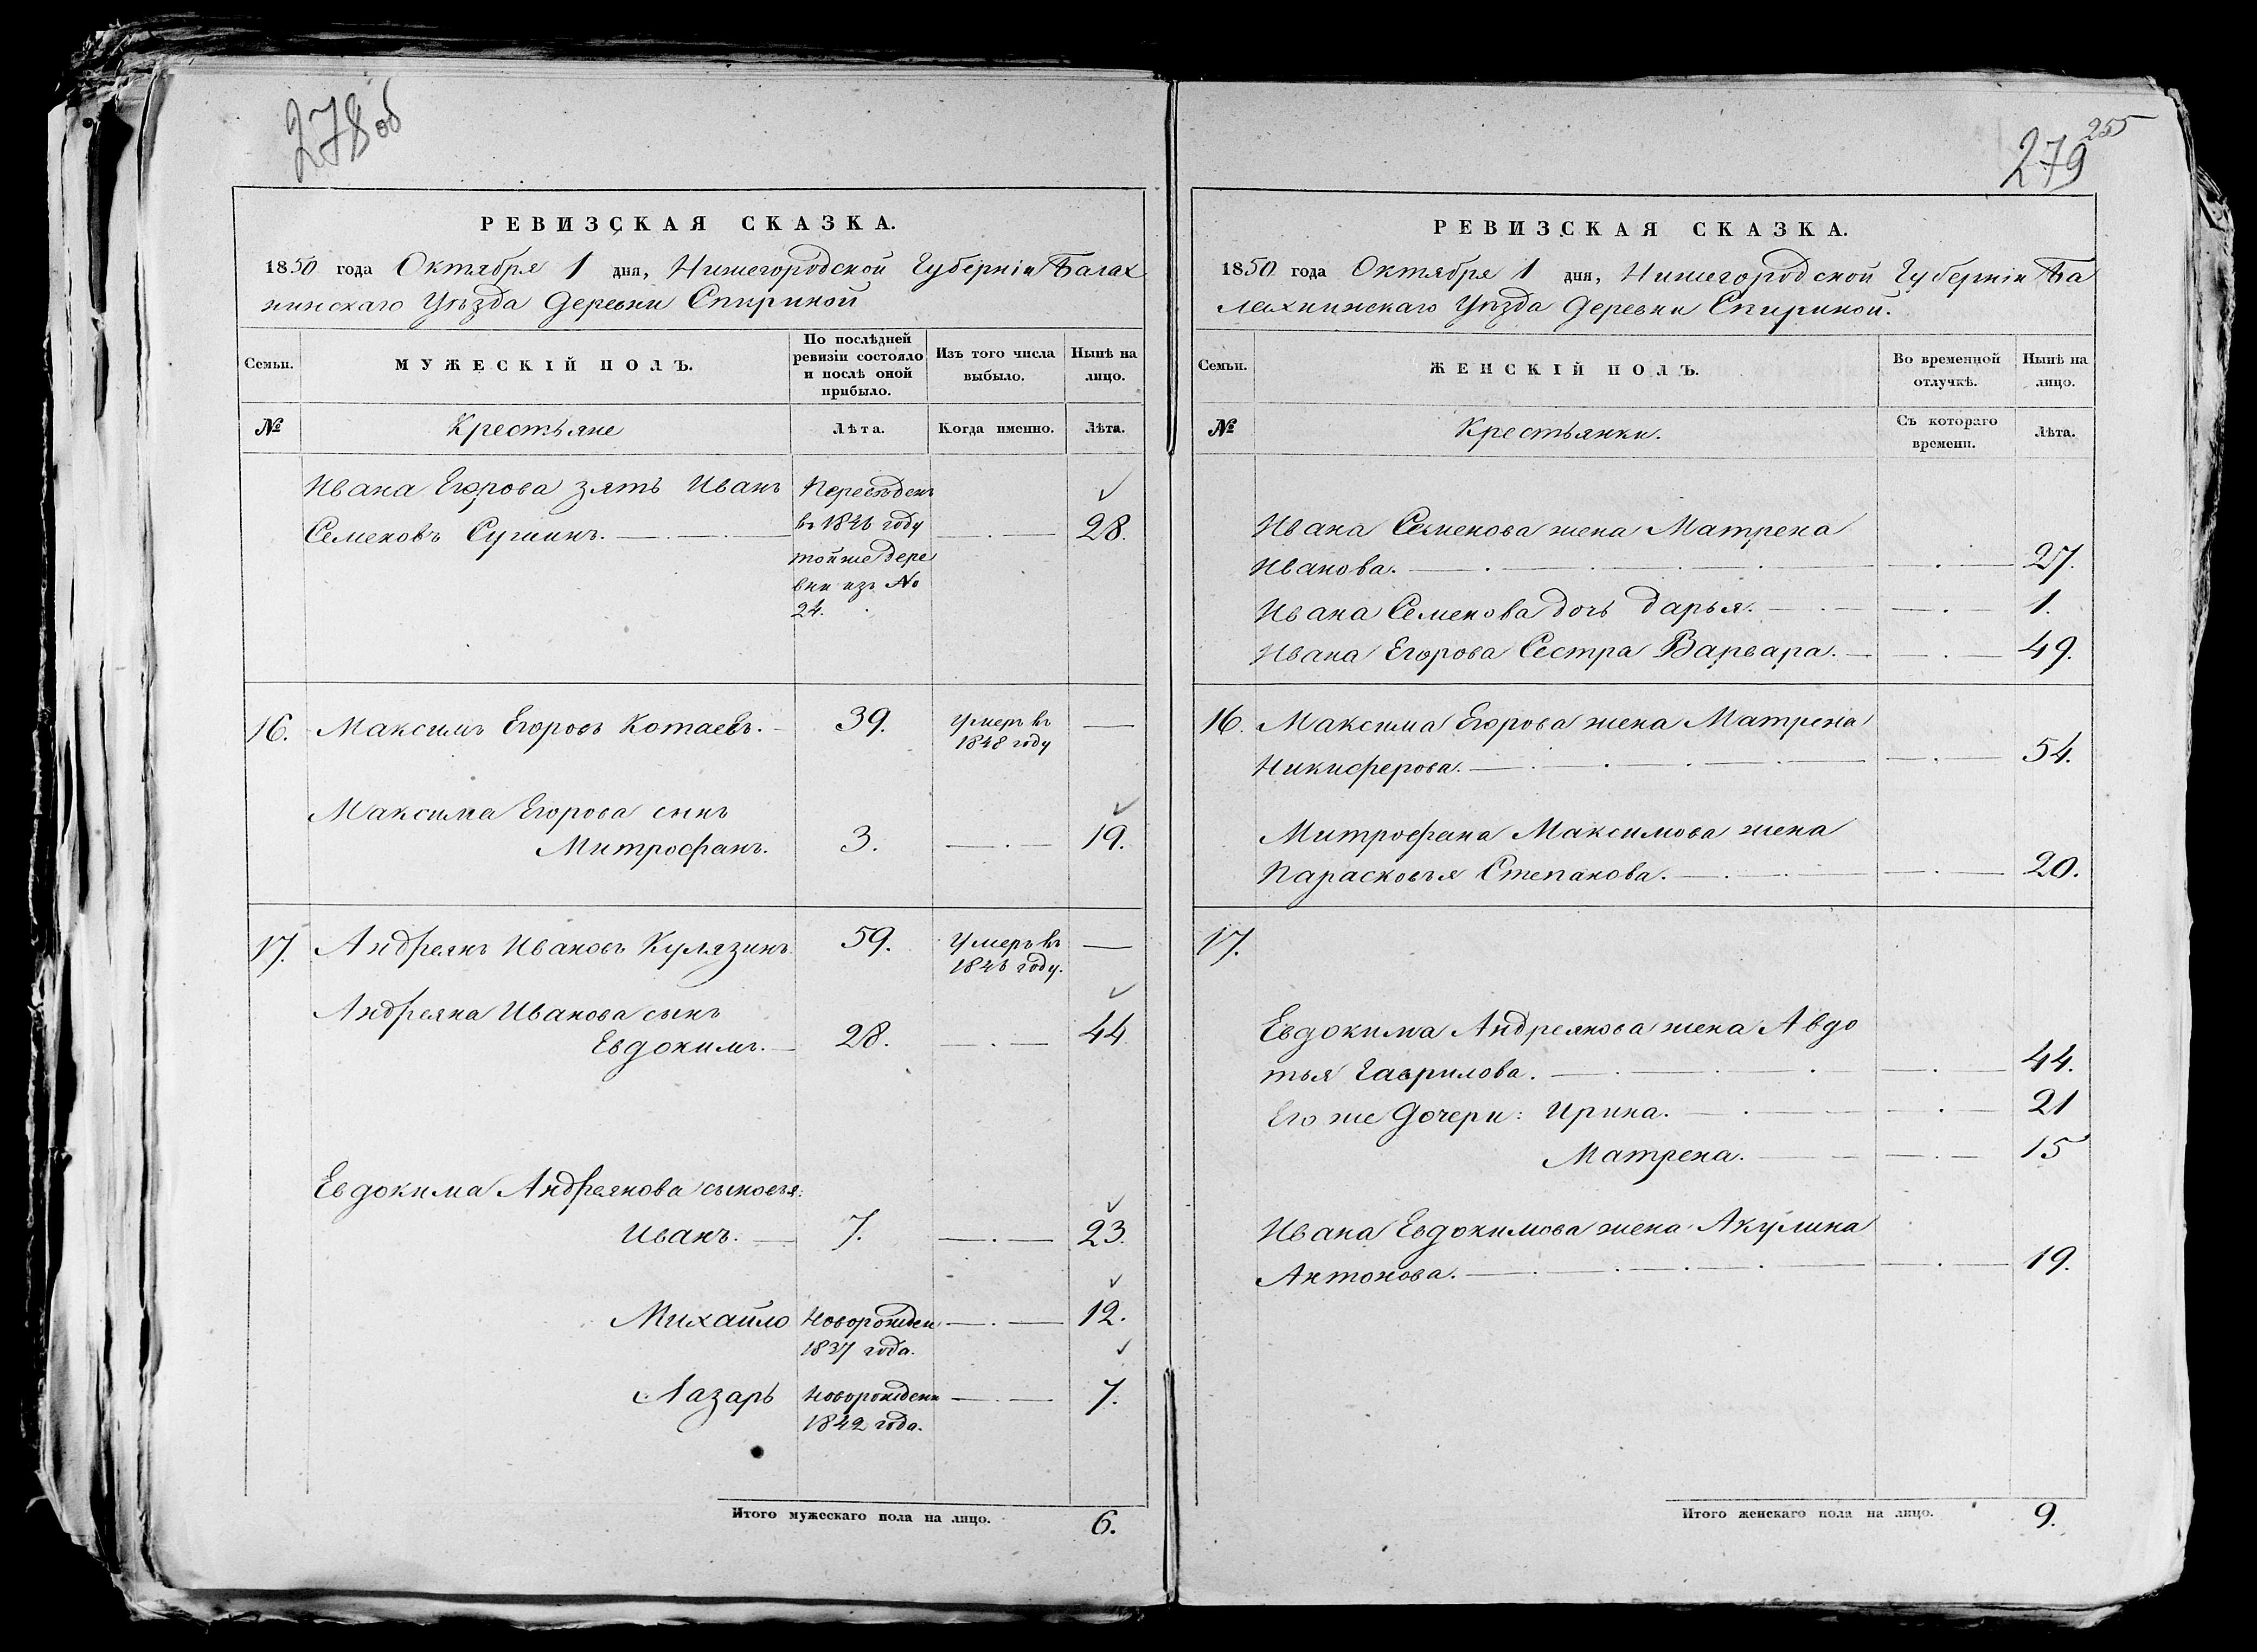 278 об
РЕВИЗСКАЯ СКАЗКА.
1850 года Октября 1 дня, Нижегородской Губерніи Балах
нинскаго Уѣзда Деревни Спириной
Семьи.
МУЖЕСКІЙ ПОЛЪ.
По послѣдней
ревизіи состояло
и послѣ оной
прибыло.
Изъ того числа
выбыло.
Нынѣ на
лицо.
№
Крестьяне
Лѣта.
Когда именно.
Лѣта.
Ивана Егорова зять Иванъ
Семеновъ
Переведенъ
въ году
тойже дере
вни изъ №
24.
28.
16. Максимъ Егоровъ Котаевъ. 39. Умеръ въ —
1848 году
Максима Егорова сынъ
Митрофанъ. 3. 19.
17. Андреянъ Ивановъ Кулязинъ. 59. Умеръ въ —
году.
Андреяна Иванова сынъ
Евдокимъ. 28. 44
Евдокима Андреянова сыновья:
Иванъ. 7. 23.
Михайло Новорожден 12.
1837 года.
Лазарь Новорожденн 7.
1842 года.
Итого мужескаго пола на лицо. 6.
255
279
РЕВИЗСКАЯ СКАЗКА.
1850 года Октября 1 дня, Нижегородской Губерніи Ба
лахнинскаго Уѣзда Деревни Спириной.
Семьи.
ЖЕНСКІЙ ПОЛЪ.
Во временной
отлучкѣ.
Нынѣ на
лицо.
№
Крестьянки.
Съ котораго
времени.
Лѣта.
Ивана Семенова жена Матрена
Иванова. 27.
Ивана Семенова дочь Дарья. 1.
Ивана Егорова Сестра Варвара. 49.
16. Максима Егорова жена Матрена
Никиферова. 54.
Митрофана Максимова жена
Парасковья Степанова. 20.
17.
Евдокима Андреянова жена Авдо
тья Гаврилова. 44.
Его же Дочери: Ирина. 21
Матрена. 15
Ивана Евдокимова жена Акулина
Антонова. 19.
Итого женскаго пола на лицо. 9.